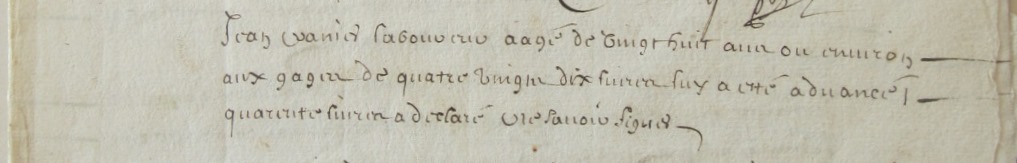 Jean vanier laboureur aagé de vingt huit ans ou environ
aux gages de quatre vingts dix livres luy a esté advancé
quarente livres a declaré ne savoir signer